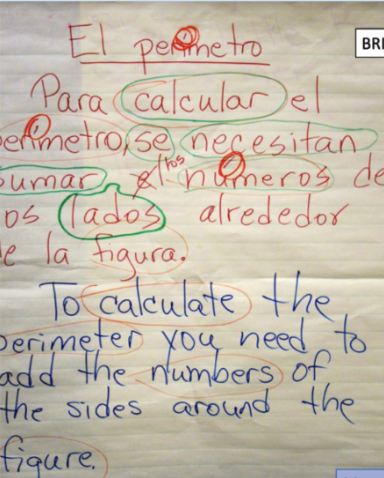 El perímetro
BRI
Para calcular el
perímetro, se necesitan
sumar el los números de
los lados alrededor
de la figura.
To calculate the
perimeter you need to
add the numbers of
the sides around the
figure.